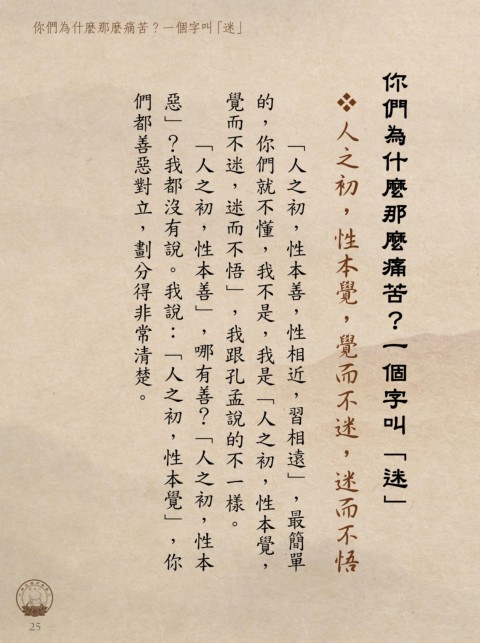 你們為什麼那麼痛苦？一個字叫「迷」
你們為什麼那麼痛苦？一個字叫「迷」
❖人之初，性本覺，覺而不迷，迷而不悟
「人之初，性本善，性相近，習相遠」，最簡單
的，你們就不懂，我不是，我是「人之初，性本覺，
覺而不迷，迷而不悟」，我跟孔孟說的不一樣。
「人之初，性本善」，哪有善？「人之初，性本
惡」？我都沒有說。我說：「人之初，性本覺」，你
們都善惡對立，劃分得非常清楚。
25